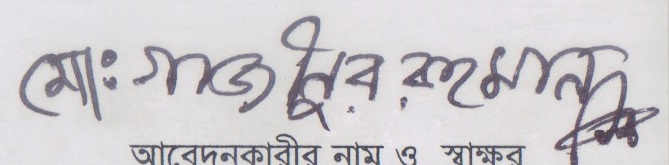 মোঃ গাজী নুর রহমান
আবেদনকারীর নাম ও স্বাক্ষর